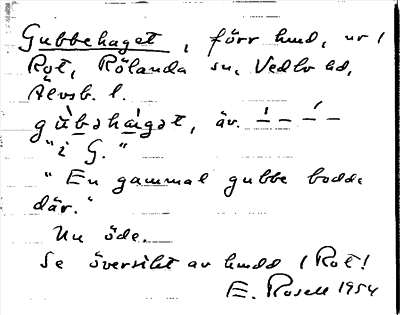 Gubbehaget, förr hmd, nr 1
Rot, Rölanda sn, Vedbo hd,
Älvsb. l.
gu̇̀bəha̱gət, äv. –́ – –́ –
"i G."
"En gammal gubbe bodde
där."
Nu öde.
Se översikt av hmdd 1 Rot!
E. Rosell 1954